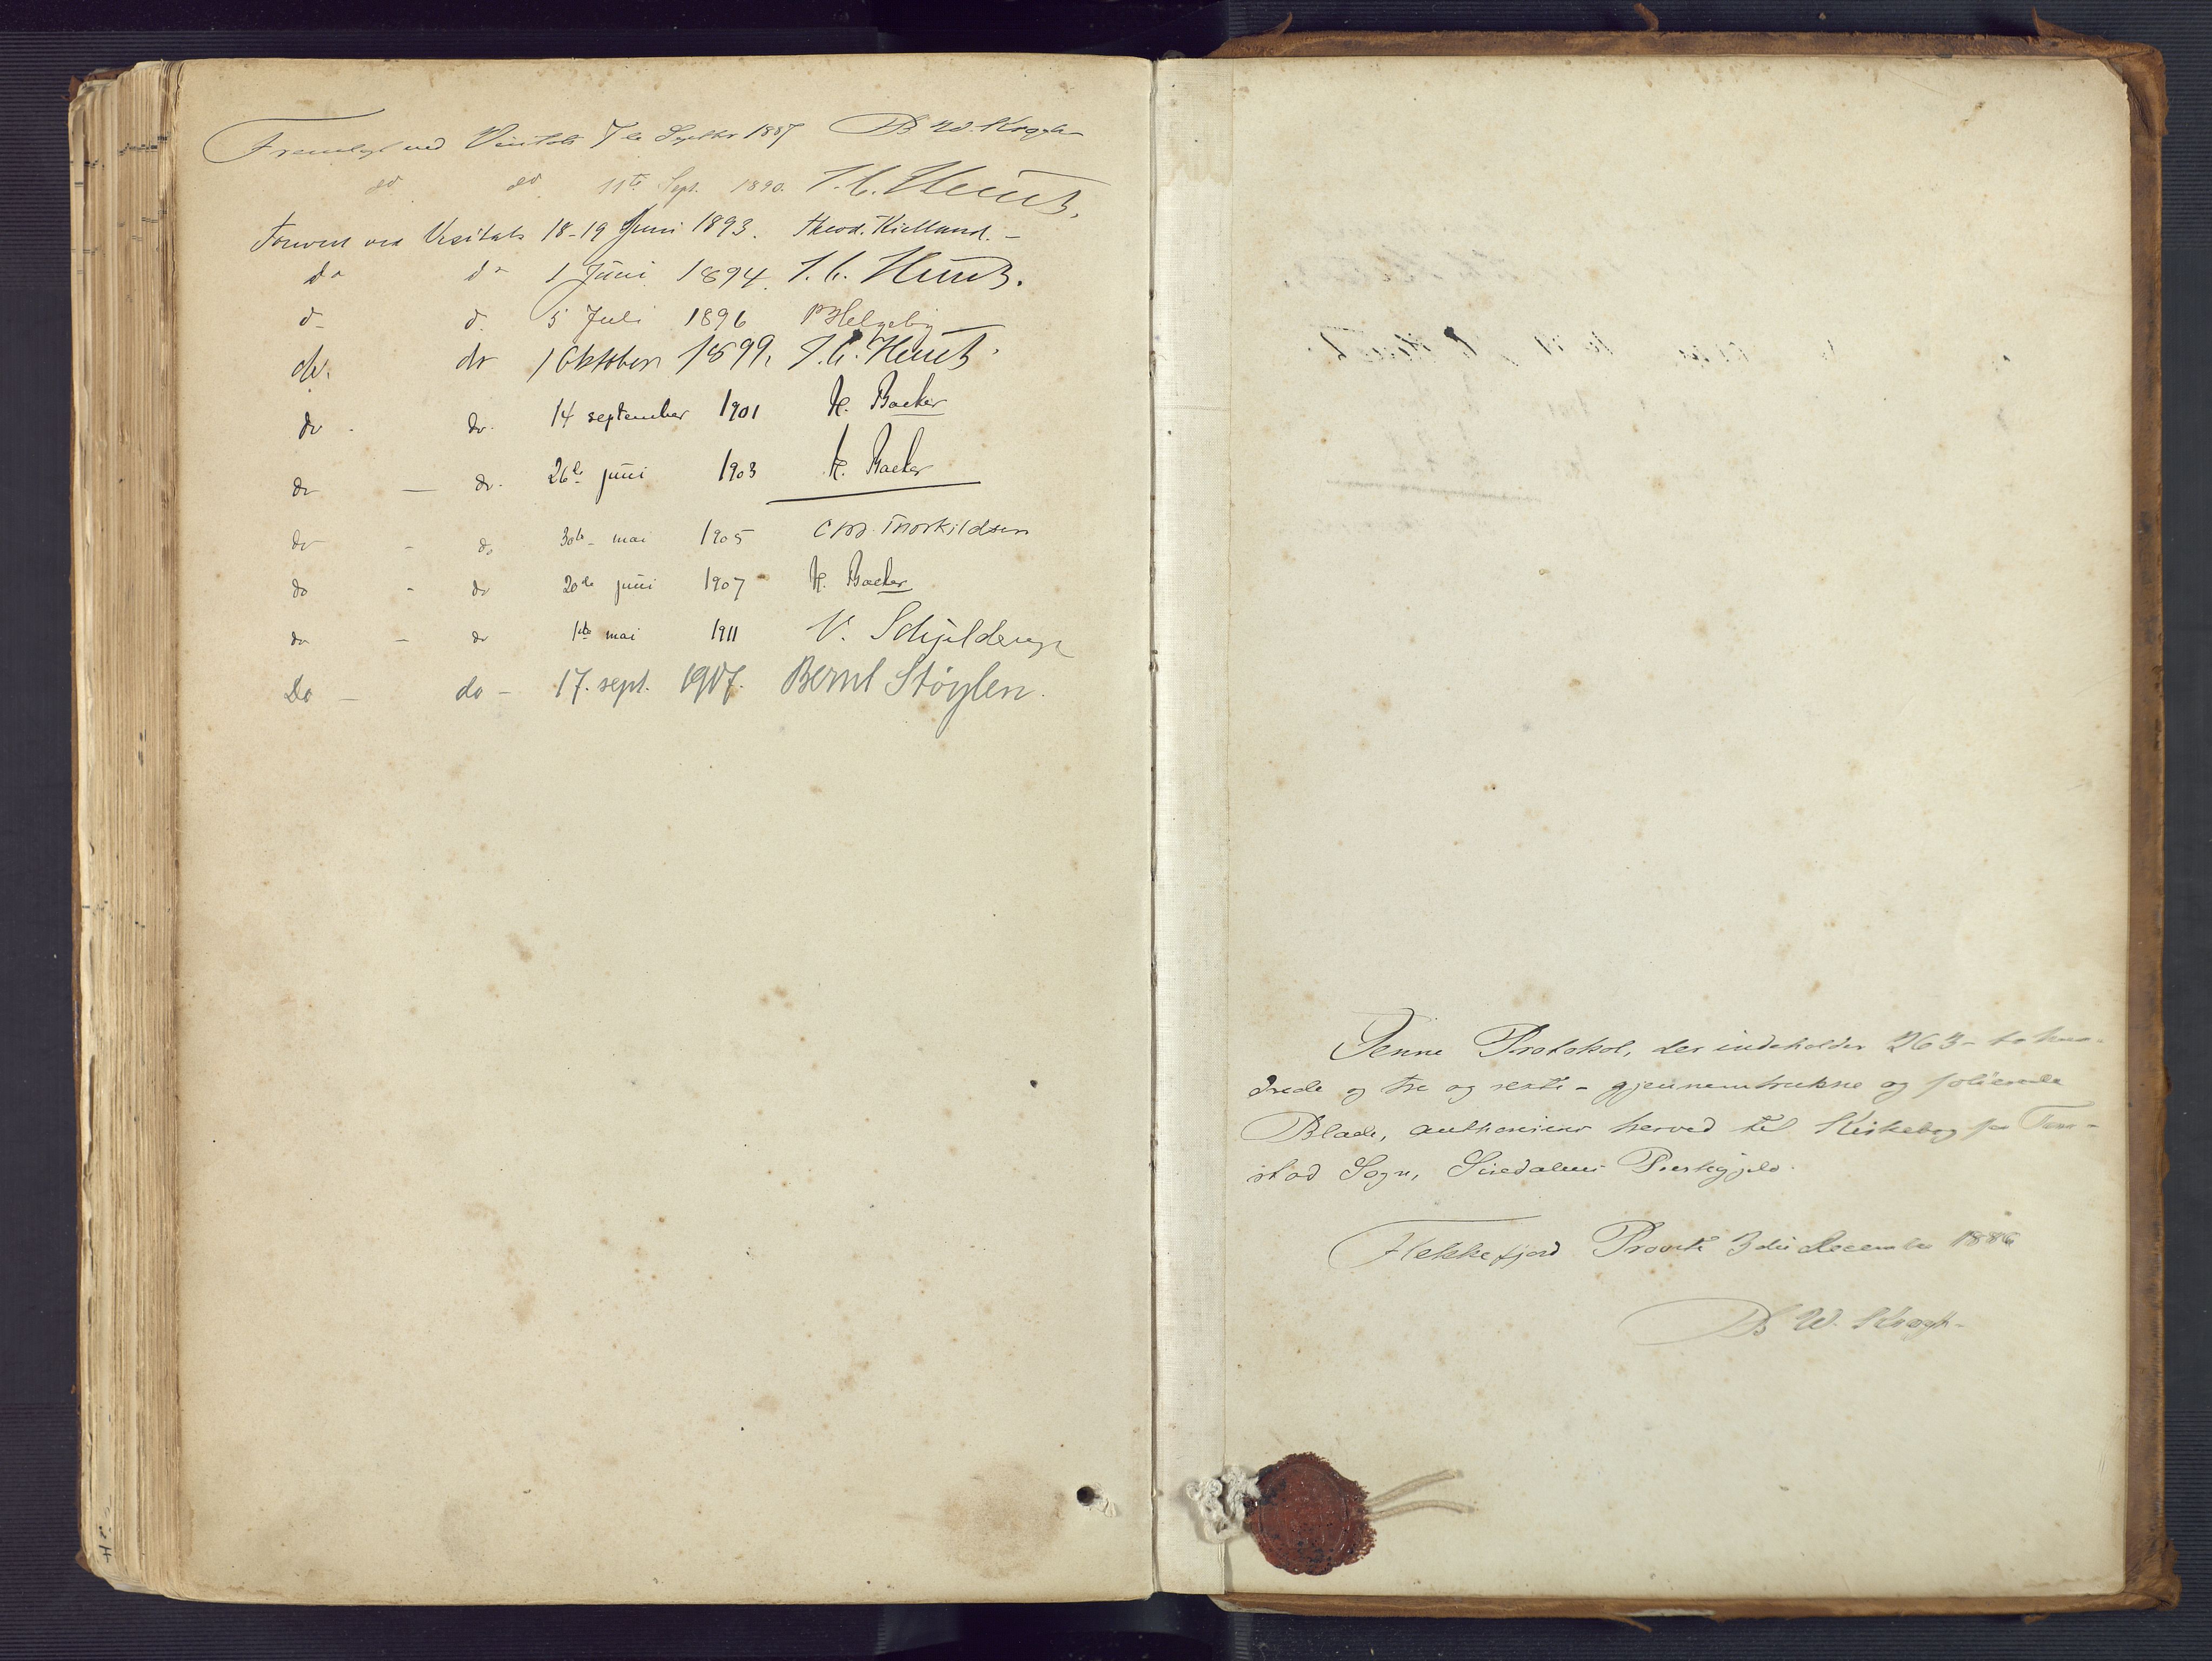 Fremlagt ved Visitats 7de Septbr 1887 B W. Krogh
do do 11te Sept. 1890. J. C. Heuch.
Forevist ved Visitats 18-19 Juni 1893. Theod. Kielland. -
do do 1 Juni 1894. J. C. Heuch.
d- d. 5 Juli 1896
do. do 1 Oktober 1899, J. C. Heuch.
do. do. 14 september 1901 H. Backer
do - do. 26de juni 1903 H. Backer
do - do 30te mai 1905 Thorkildsen
do - do 20de juni 1907 H. Backer
do - do 1ste mai 1911 V. Schjelderup
Do - do - 17. sept. 1917. Bernt Støylen.
Denne Protokol, der indeholder 263 - to hun-
drede og tre og sexti - gjennemtrukne og folierede
Blade, authoriseres herved til Kirkebog for Ton-
stad Sogn, Siredalens Præstegjeld.
Flekkefjord Provsti 3die December 1886
B W. Krogh